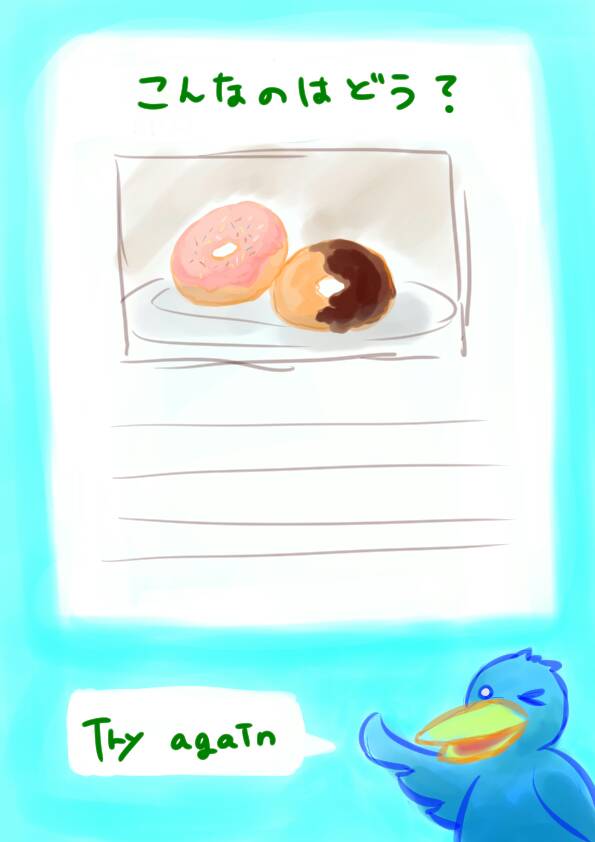 こんなのはどう？
Try again